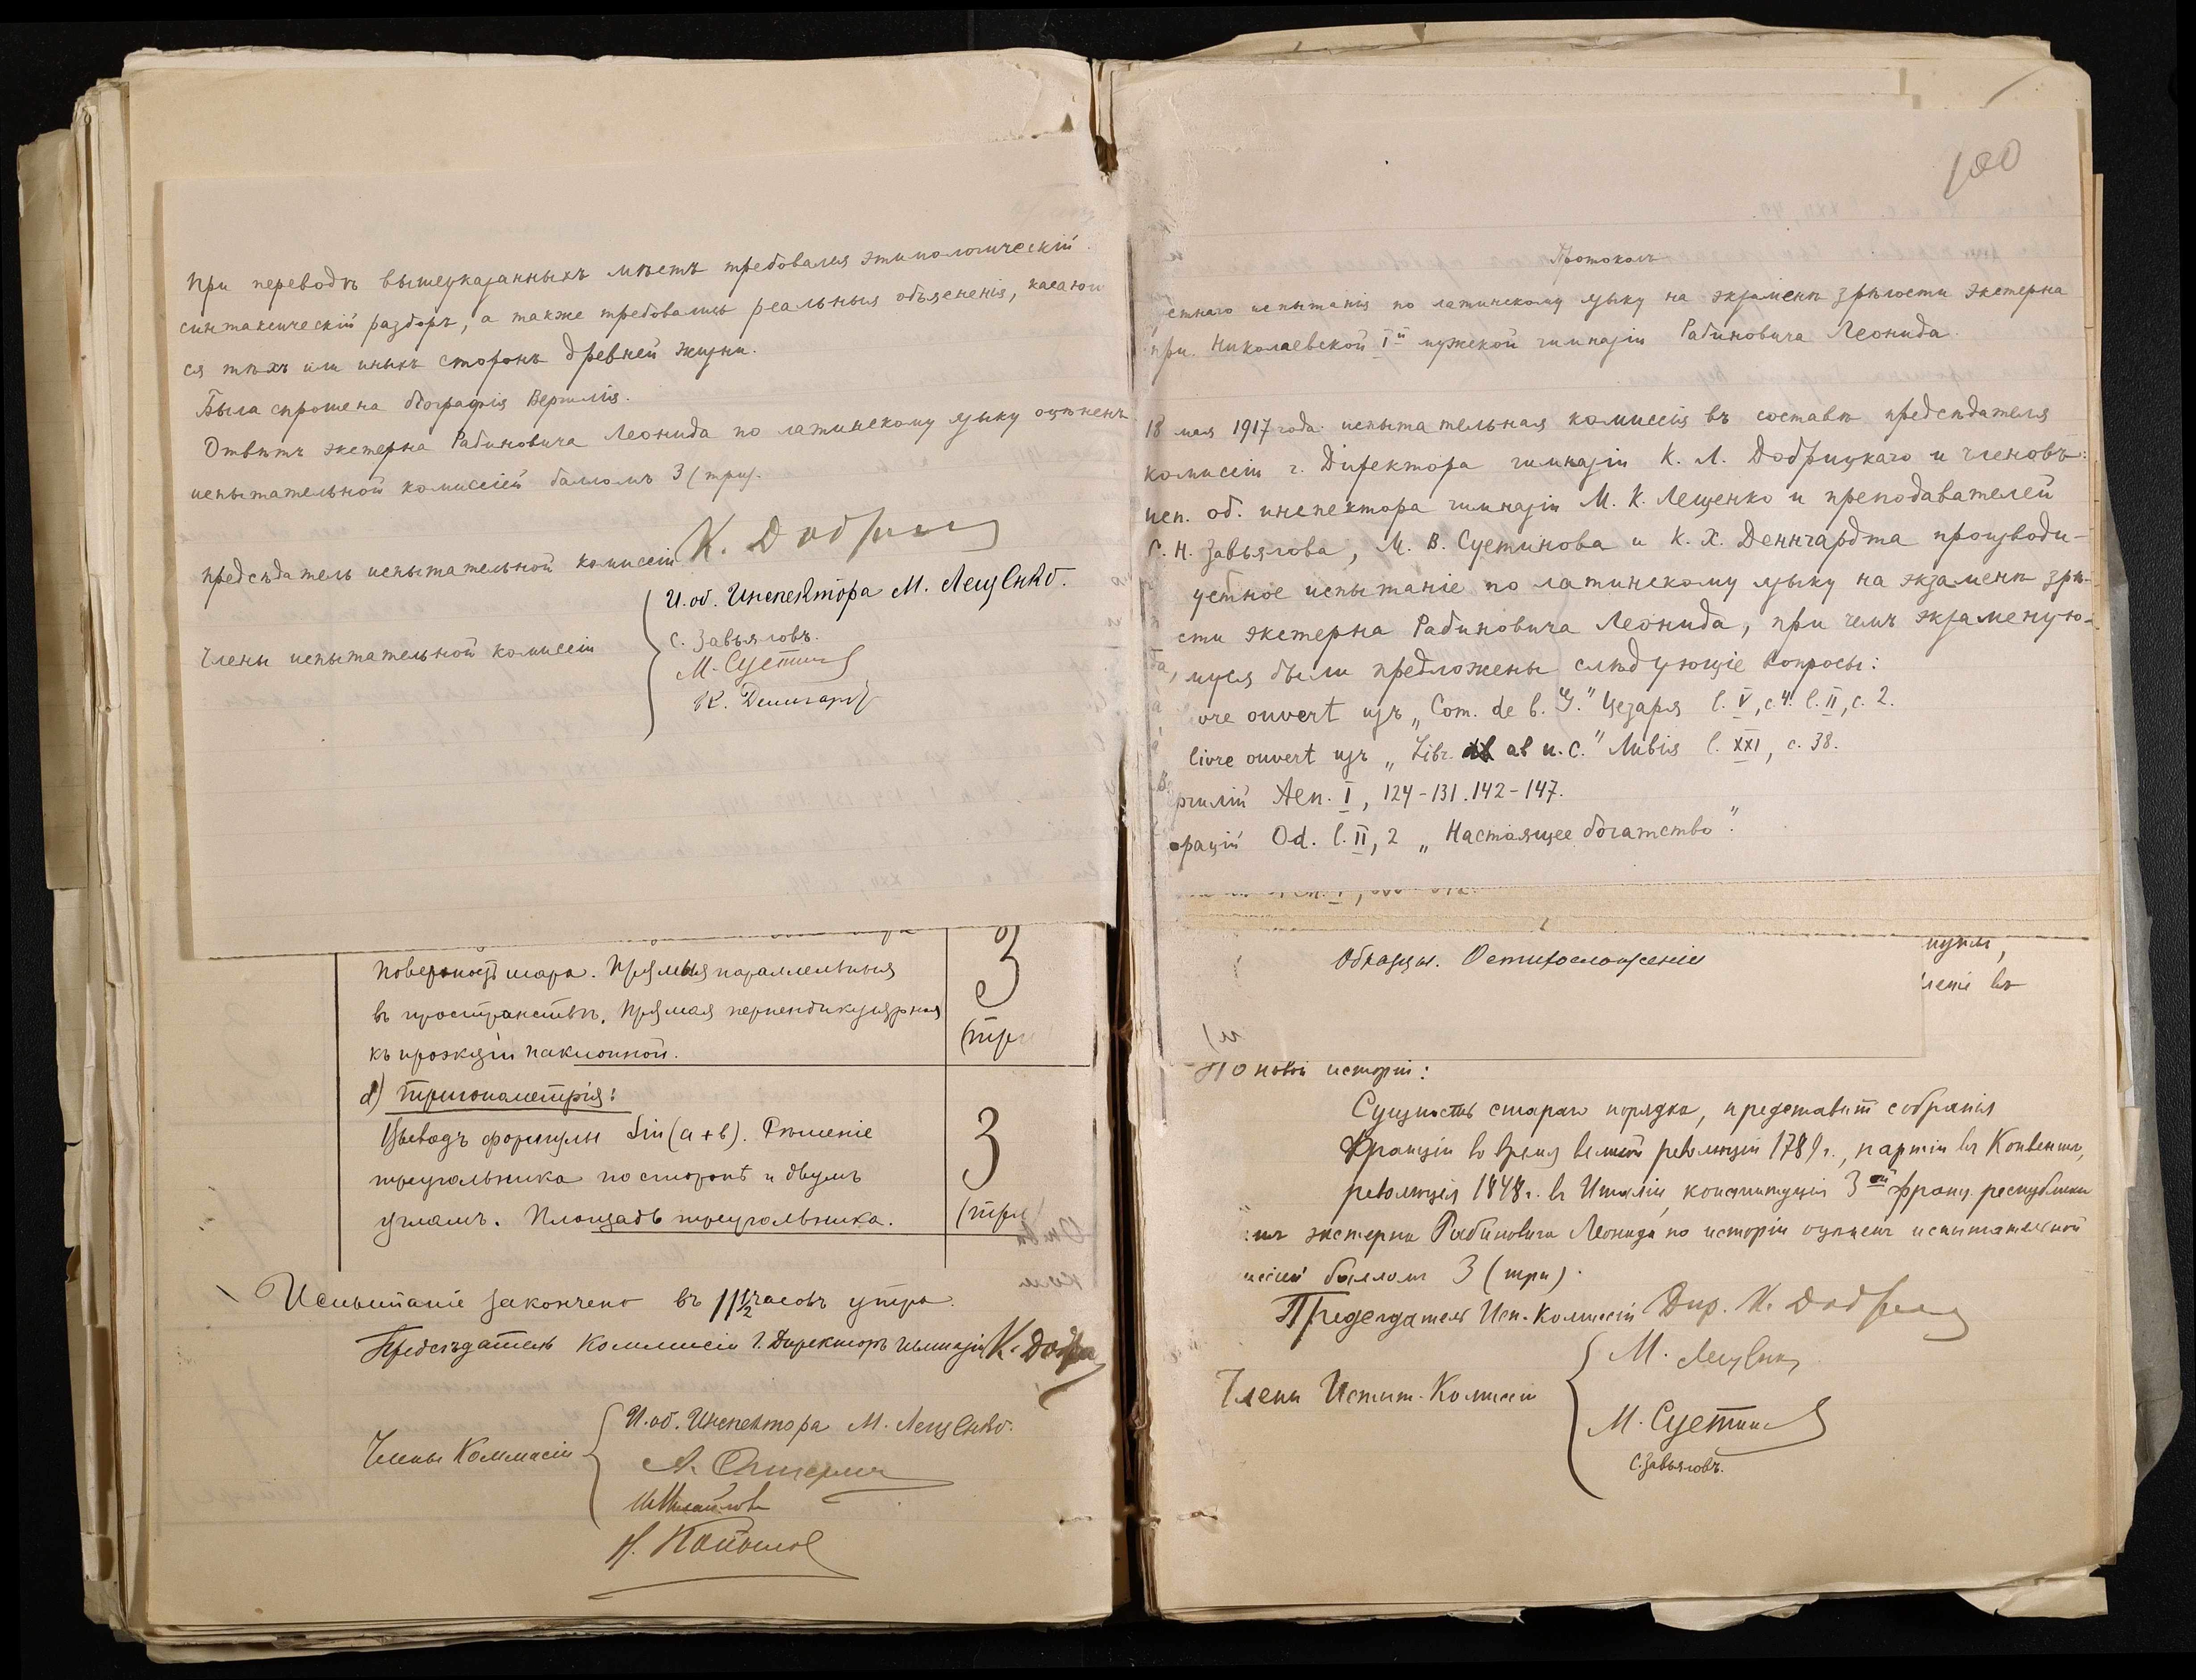 При переводѣ вышеуказанныхъ мѣстъ требовался этимологическій
синтаксическій разборъ, а также требовались реальныя объясненія, касающі
ся тѣхъ или иныхъ сторонъ древней жизни.
Была спрошена біографія Вергилія.
Отвѣтъ экстерна Рабиновича Леонида по латинскому языку оцѣненъ
испытательной комиссіей балломъ 3 (три).
Предсѣдатель испытательной комиссіи К. Добр
Члены испытательной комиссіи
И. об. Инспектора М. Лещенко.
С. Завьяловъ.
М. Суетин
К. Деннгардт
поверхность шара. Прямыя параллельныя
въ пространствѣ. Прямая перпендикулярная
къ проэкціи наклонной.
3
(три
d) Тригонометрія:
Выводъ формулы Sin(a+b). Рѣшеніе
треугольника по сторонѣ и двумъ
угламъ. Площадь треугольника.
3
(три)
Испытаніе закончено въ 11 1/2 часовъ утра.
Предсѣдатель Коммисіи Г. Директоръ гимназіи К. Добр
Члены Коммисіи
И. об. Инспектора М. Лещенко.
100
Протоколъ
устнаго испытанія по латинскому языку на экзаменѣ зрѣлости экстерна
при Николаевской I й мужской гимназіи Рабиновича Леонида.
18 мая 1917 года испытательная комиссія въ составѣ предсѣдателя
комиссіи г. Директора гимназіи К. Л. Добрицкаго и членовъ:
исп. об. инспектора гимназіи М. К. Лещенко и преподавателей
С. Н. Завьялова, М. В. Суетинова и К. Х. Деннгардта производи-
устное испытаніе по латинскому языку на экзаменѣ зрѣ-
сти экстерна Рабиновича Леонида, при чемъ экзаменую-
муся были предложены слѣдующіе вопросы:
ivre ouvert изъ „Com. de b. G." Цезаря l. V, c. 4. l. II, c. 2.
livre ouvert изъ „Libr. ab u. c." Ливія l. XXI, c. 38.
Вергилій Aen. I, 124-131. 142-147.
орацій Od. l. II, 2 „Настоящее богатство".
Образцы. О стихосложеніи
леніе въ
По новой исторіи:
Сущность стараго порядка, представит собранія
Франціи во время великой революціи 1789 г., партіи въ Конвентѣ,
революція 1848 г. въ Италіи, конституція 3 ей франц. республики
экстерна Рабиновича Леонида по исторіи оцѣненъ испытательной
иссіей балломъ 3 (три).
Предсѣдатель Исп. Комиссіи Дир. К. Добр
Члены Испыт. Комиссіи
М. Лещенк
М. Суетин
С. Завьяловъ.